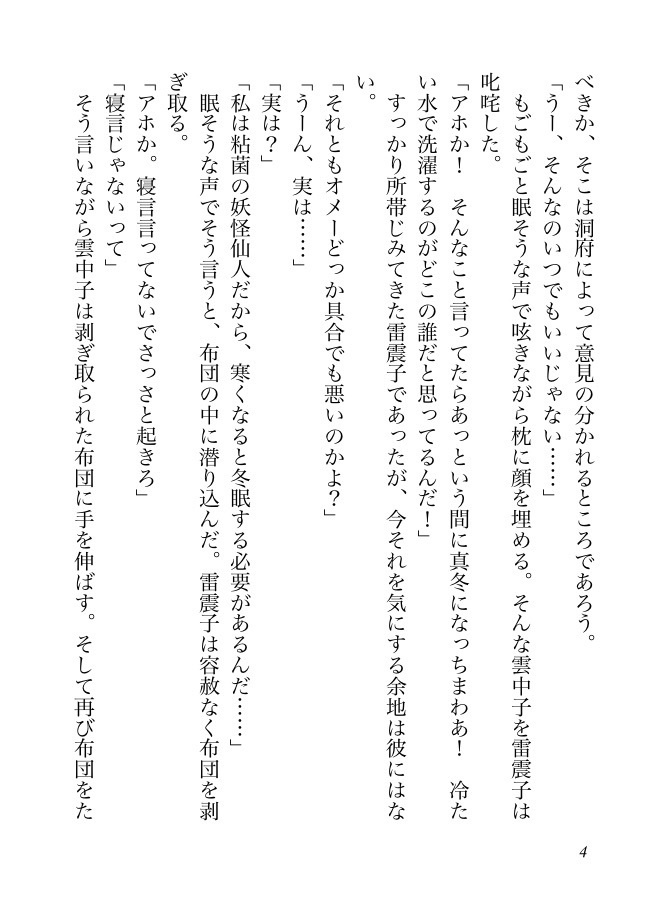 べきか、そこは洞府によって意見の分かれるところであろう。
「うー、そんなのいつでもいいじゃない……」
　もごもごと眠そうな声で呟きながら枕に顔を埋める。そんな雲中子を雷震子は
叱咤した。
「アホか！　そんなこと言ってたらあっという間に真冬になっちまわあ！　冷た
い水で洗濯するのがどこの誰だと思ってるんだ！」
　すっかり所帯じみてきた雷震子であったが、今それを気にする余地は彼にはな
い。
「それともオメーどっか具合でも悪いのかよ？」
「うーん、実は……」
「実は？」
「私は粘菌の妖怪仙人だから、寒くなると冬眠する必要があるんだ……」
　眠そうな声でそう言うと、布団の中に潜り込んだ。雷震子は容赦なく布団を剥
ぎ取る。
「アホか。寝言言ってないでさっさと起きろ」
「寝言じゃないって」
　そう言いながら雲中子は剥ぎ取られた布団に手を伸ばす。そして再び布団をた
4